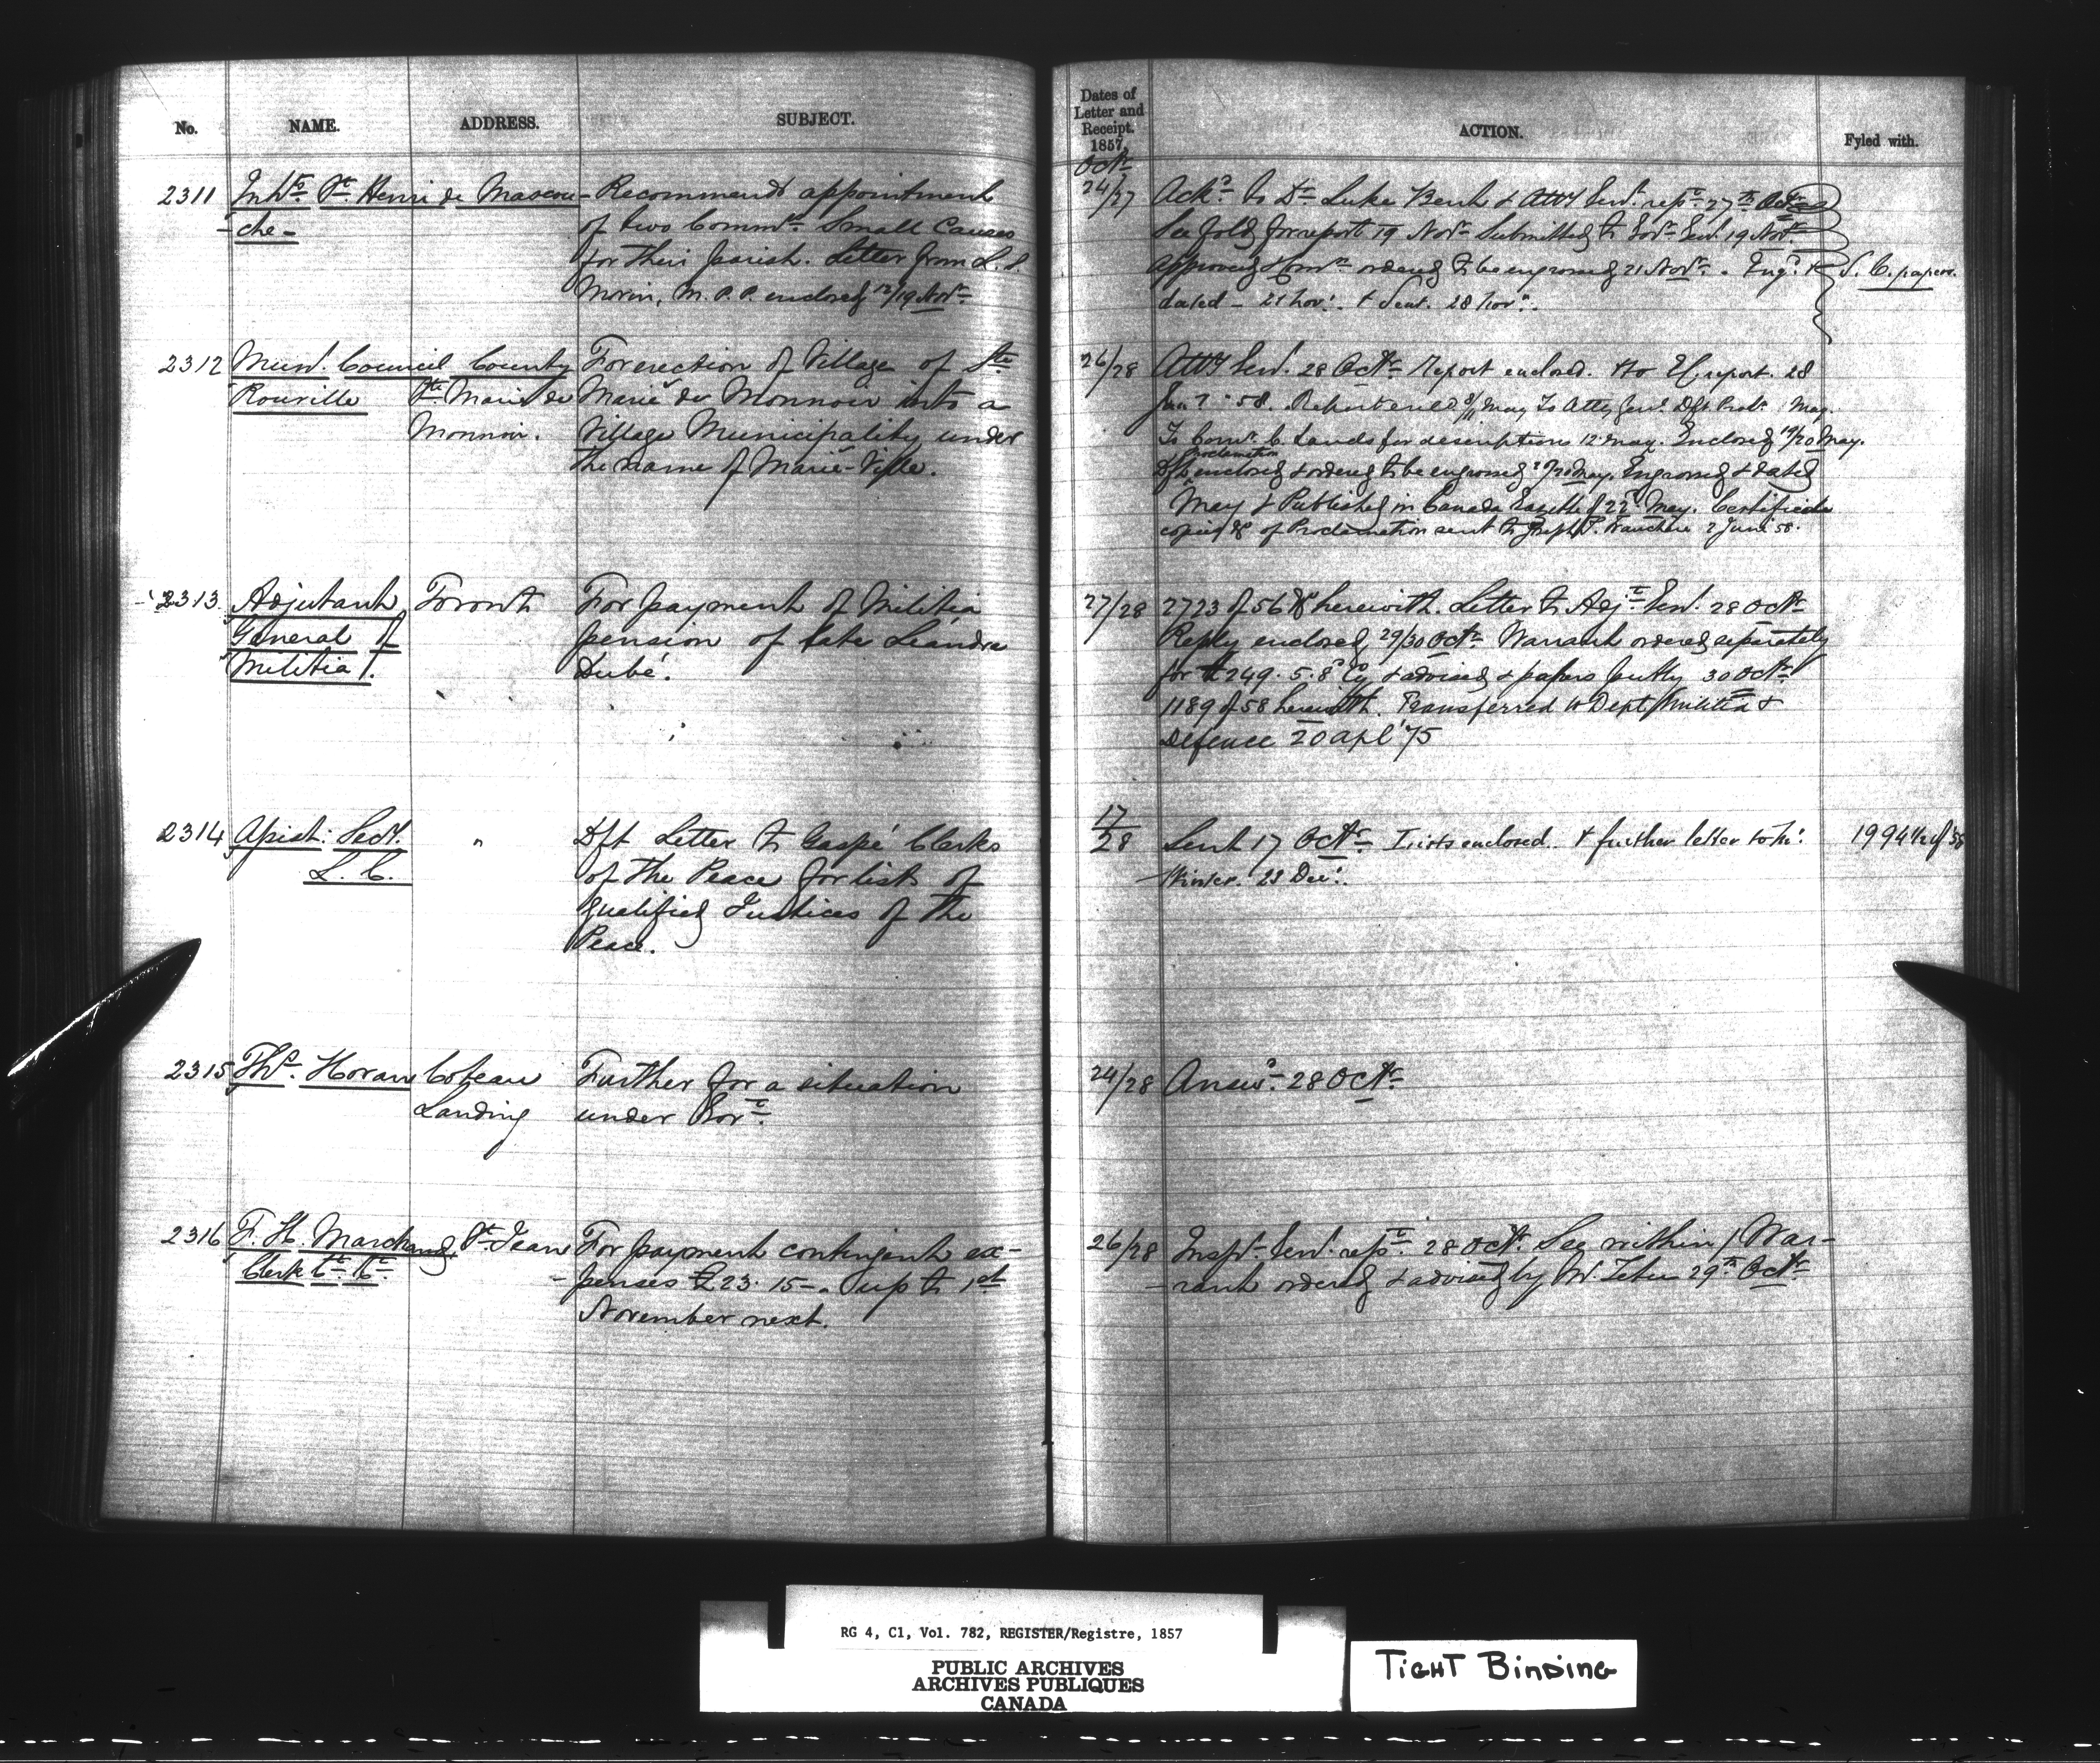 No. NAME. ADDRESS. SUBJECT.
2311 Inhts St. Henri de Mascou- Recommends appointment
-che- of two Commrs Small Causes
for their parish. Letter from L. S.
Morin, M.P.P. enclosed 12/19 Novr
2312 Munl. Council County For erection of Village of Ste
Rouville Ste. Marie de Marie de Monnoir into a
Monnoir. Village Municipality under
the name of Marie-Ville.
2313 Adjutant Toronto For payment of Militia
General of pension of late Léandre
Militia. Dubé.
2314 Assist: Secy. " Dft Letter to Gaspé Clerks
L. C. of the Peace for lists of
qualified Justices of the
Peace.
2315 Ths. Horan Coteau Further for a situation
Landing under Govt.
2316 F. H. Marchand, St. Jean For payment contingent ex-
Clerk Ct. Ct. - penses £23. 15-. up to 1st
November next.
Dates of
Letter and
Receipt.
1857.
ACTION. Fyled with.
Octr
24/27 Ackd. to Dr Luke Bent & Atty Genl. repd. 27th Octr
See fold for report 19 Novr Submitted to Govr. Genl. 19 Novr
Approved & Comn ordered to be engrossed 21 Novr. Engd. & S. C. papers.
dated - 21 Novr. & Sent. 28 Novr.
26/28 Atty Genl. 28 Octr Report enclosed. to EC report. 28
Jany 58. Report May To Atty Genl. Dft Procln May.
To Comr. C. Lands for description 12 May. Enclosed 19/20 May.
Proclamation
Dft enclosed & ordered to be engrossed May. Engrossed & dated
May & Published in Canada Gazette of 22d. May. Certified
copies of Proclamation sent to Joseph T. Franchere 2 June 58.
27/28 2723 of 56 herewith. Letter to Adjt Genl. 28 Octr
Reply enclosed, 29/30 Octr Warrant ordered separately
for £249. 5. 8 Cy & advised & papers 30 Octr
1189 of 58 herewith. Transferred to Dept Militia &
Defence 20 apl '75
17
28 Sent 17 Octr Lists enclosed. & further letter to Mr. 1994½ of 58
Winter. 23 Decr.
24/28 Answd. 28 Octr
26/28 Inspr. Genl. repd. 28 Octr. See within / War-
-rant ordered & advised by W. Letter 29th Octr
RG 4, C1, Vol. 782, REGISTER/Registre, 1857
PUBLIC ARCHIVES
ARCHIVES PUBLIQUES
CANADA
TIGHT BINDING